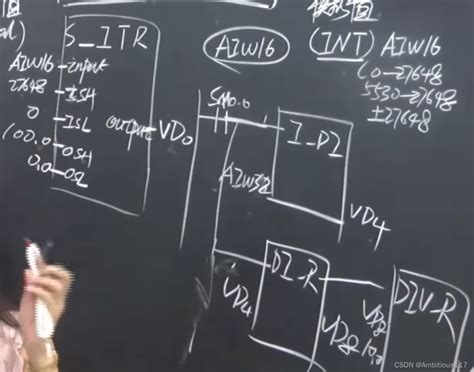 模拟值
S_ITR
AIW16
(INT) AIW16
AIW16 input
27648 ISH
0 ISL
output VD0
100.0 OSH
0.0 OSL
(0-27648
5530-27648
±27648
SM0.0
I_DI
AIW32
VD4
DI_R
VD4
VD8
VD8
10.0
DIV_R
CSDN @Ambitious4.17